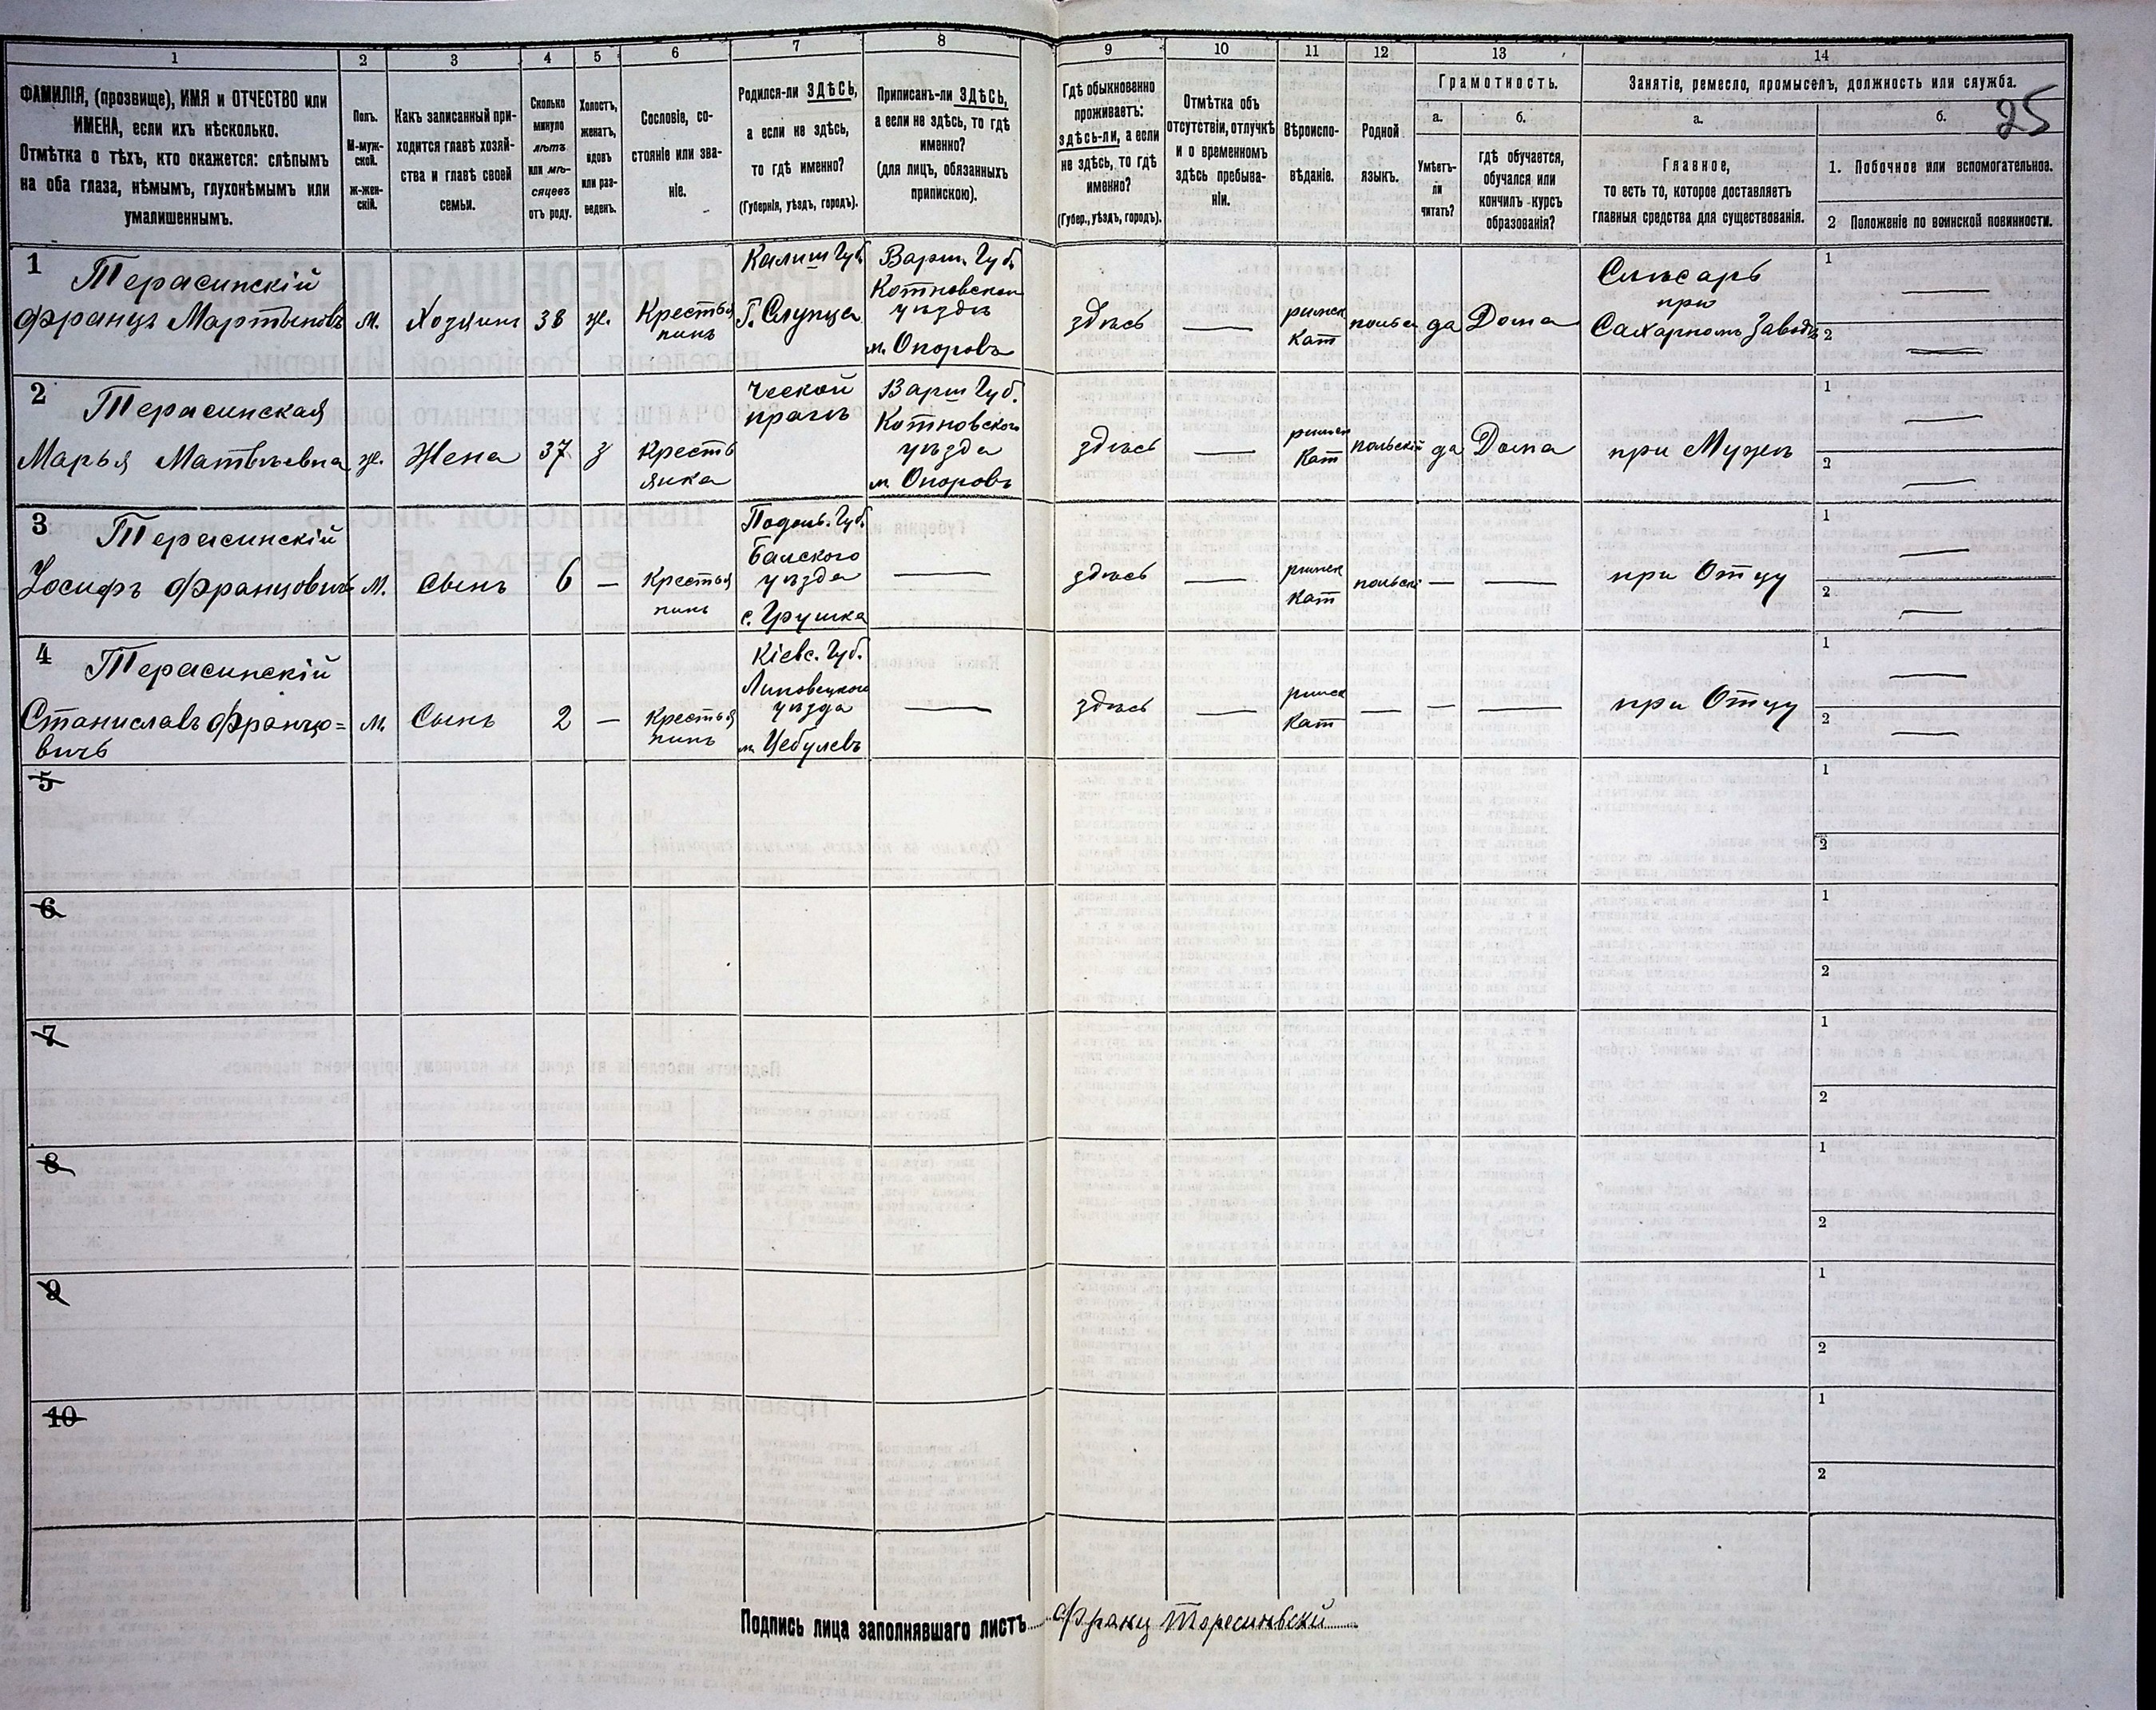 1 2 3 4 5 6 7 8 9 10 11 12 13 14
ФАМИЛІЯ, (прозвище), ИМЯ и ОТЧЕСТВО или
ИМЕНА, если ихъ нѣсколько.
Отмѣтка о тѣхъ, кто окажется: слѣпымъ
на оба глаза, нѣмымъ, глухонѣмымъ или
умалишеннымъ.
Полъ.
М-муж-
ской.
ж-жен-
скій.
Какъ записанный при-
ходится главѣ хозяй-
ства и главѣ своей
семьи.
Сколько
минуло
лѣтъ
или мѣ-
сяцевъ
отъ роду.
Холостъ,
женатъ,
вдовъ
или раз-
веденъ.
Сословіе, со-
стояніе или зва-
ніе.
Родился-ли ЗДѢСЬ,
а если не здѣсь,
то гдѣ именно?
(Губернія, уѣздъ, городъ).
Приписанъ-ли ЗДѢСЬ,
а если не здѣсь, то гдѣ
именно?
(для лицъ, обязанныхъ
припискою).
Гдѣ обыкновенно
проживаетъ:
здѣсь-ли, а если
не здѣсь, то гдѣ
именно?
(Губер., уѣздъ, городъ).
Отмѣтка объ
отсутствіи, отлучкѣ
и о временномъ
здѣсь пребыва-
ніи.
Вѣроиспо-
вѣданіе.
Родной
языкъ.
Грамотность.
а.
Умѣетъ-
ли
читать?
б.
гдѣ обучается,
обучался или
кончилъ курсъ
образованія?
Занятіе, ремесло, промыселъ, должность или служба.
а.
Главное,
то есть то, которое доставляетъ
главныя средства для существованія.
б.
25
1. Побочное или вспомогательное.
2 Положеніе по воинской повинности.
1
Терасинскій
Францъ Мартыновъ
м.
Хозяинъ
38
ж.
Крестья
нинъ
Калиш Губ.
Г. Слупца
Варш. Губ.
Котновском
уѣздѣ
м. Опоровъ
здѣсь
—
римск
Кат
польск
да
Дома
Слѣсарь
при
Сахарномъ Заводѣ
1 —
2 —
2
Терасинская
Марья Матвѣевна
ж.
Жена
37
з
Кресть
янка
Ческой
прагѣ
Варш Губ.
Котновского
уѣзда
м. Опоровъ
здѣсь
—
римск
Кат
польскій
да
Дома
при Мужѣ
1 —
2 —
3
Терасинскій
Іосифъ Францовичъ
М.
Сынъ
6
—
Крестья
нинъ
Подоль. Губ.
Балского
уѣзда
с. Грушка
—
здѣсь
—
римск
Кат
польскі
—
—
при Отцу
1 —
2 —
4
Терасинскій
Станиславъ Францо=
вичъ
М.
Сынъ
2
—
Крестья
нинъ
Кіевс. Губ.
Липовецкого
уѣзда
м. Цебулевъ
—
здѣсь
—
римск
Кат
—
—
—
при Отцу
1 —
2 —
5
1
2
6
1
2
7
1
2
8
1
2
9
1
2
10
1
2
Подпись лица заполнявшаго листъ Францъ Таресиньскій